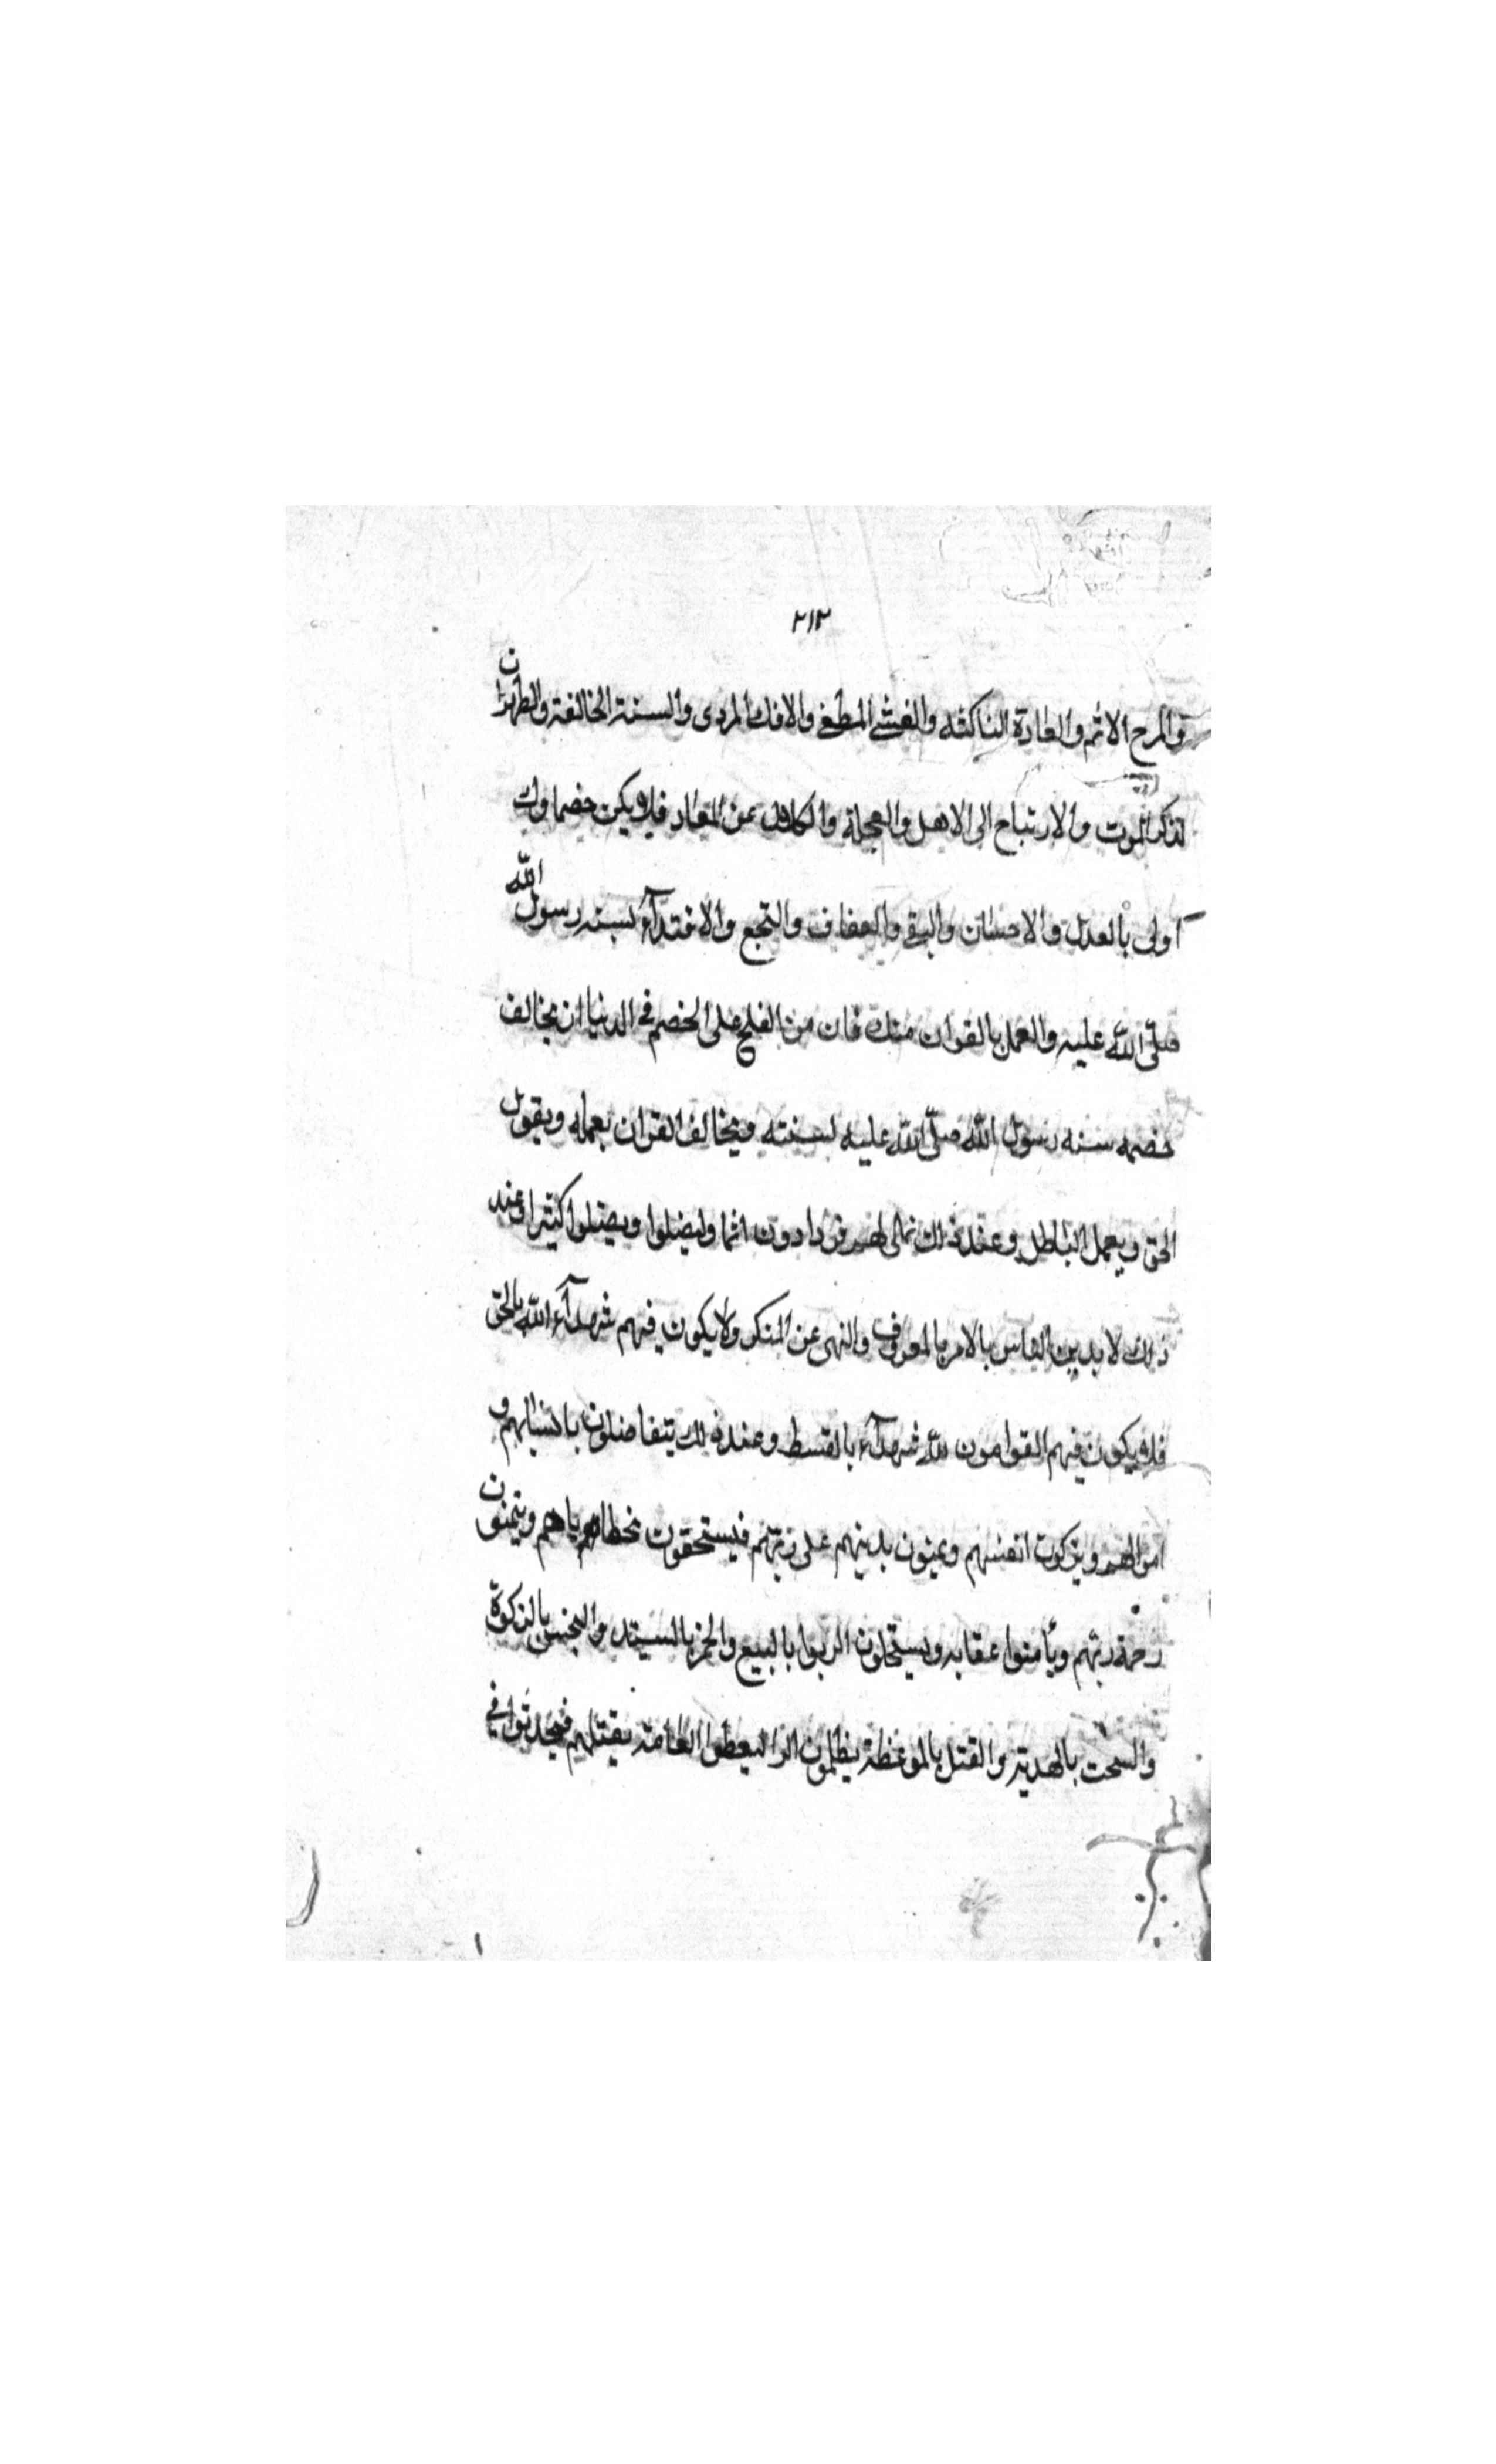 ٢١٢
والمرح الاثم والعادة الناكثه والفشي المطغي والافك المردى والسنة الخالفة والطهران
لذكر الموت والارتياح الى الاهل والعجلة عن المعاد فلا يكن خصماوك
اولى بالعدل والاحسان والتقى والعفاف والاقتدآء لسنه رسول الله
صلّى اللّه عليه والعمل بالقران منك فان من الفلج على الخصم في الدنيا ان يخالف
خصمه سنه رسول الله صلّى الله عليه لسنته ويخالف القران بعمله ويقول
الحق ويعمل الباطل وعند ذلك نملى لهم فزدادون اثما وليضلوا ويضلوا كثيرا وعند
ذلك لا يدين الناس بالامر بالمعروف والنهى عن المنكر ولا يكون فيهم شهدآء الله بالحق
فلا يكون فيهم القوامون للّه شهدآء بالقسط وعند ذلك يتفاضلون بانسابهم و
اموالهم ويزكون انفسهم ويمنون بدينهم على ربّهم فيستحقون ويتمنون
رحمة ربّهم ويأمنوا عقابه ويستحلون الربوا بالبيع والخمز بالسيتد والبخس بالزكوة
والسحت بالهديّة والقتل بالموعظة يظلمون العامّة بقتلهم فيحدثوا في